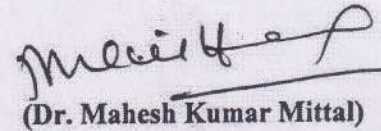 (Dr. Mahesh Kumar Mittal)